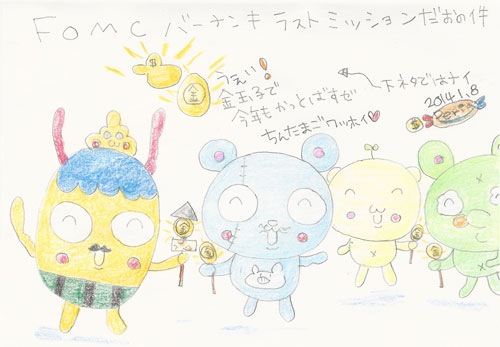 FOMC バーナンキ ラストミッションだおの件
うぇい!
金玉3で
今年もかっとばすぜ
ちんたまごワッホイ♡
←下ネタではナイ
2014.1.8
$
金
$
$
$
$